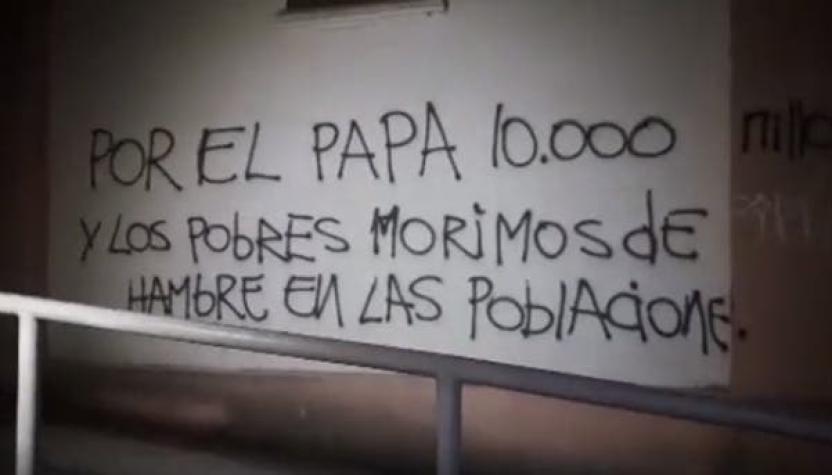 POR EL PAPA 10.000
Y LOS PObRES MORiMOS dE
HAMbRE EN LAS PoblAcionE.